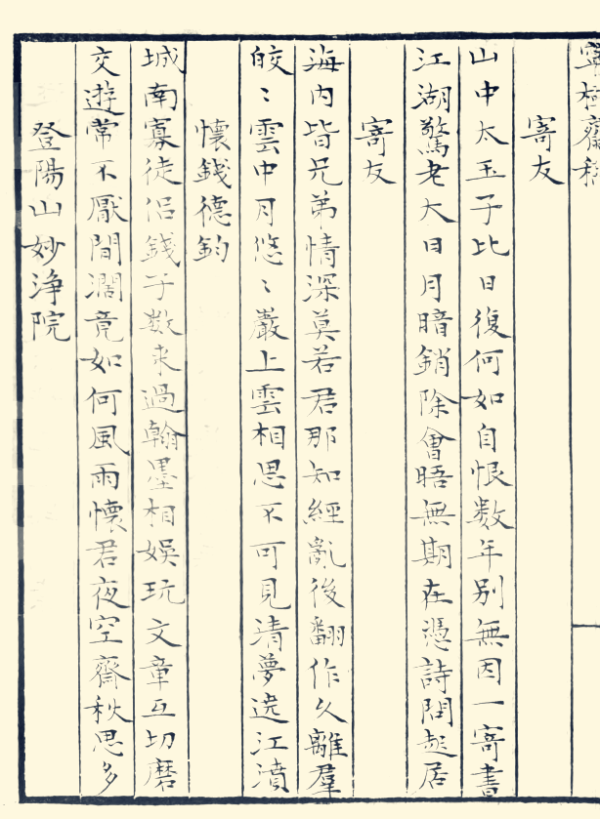 寧極齋稿
寄友
山中太玉子比日復何如自恨数年别無因一寄書
江湖驚老大日月暗銷除會晤無期在憑詩問起居
寄友
海内皆兄弟情深莫若君那知經亂後翻作久離羣
皎〻雲中月悠〻巖上雲相思不可見清夢遶江濆
懷錢德鈞
城南寡徒侣錢子数来過翰墨相娛玩文章互切磨
交遊常不厭間濶竟如何風雨懷君夜空齋秋思多
登陽山妙淨院